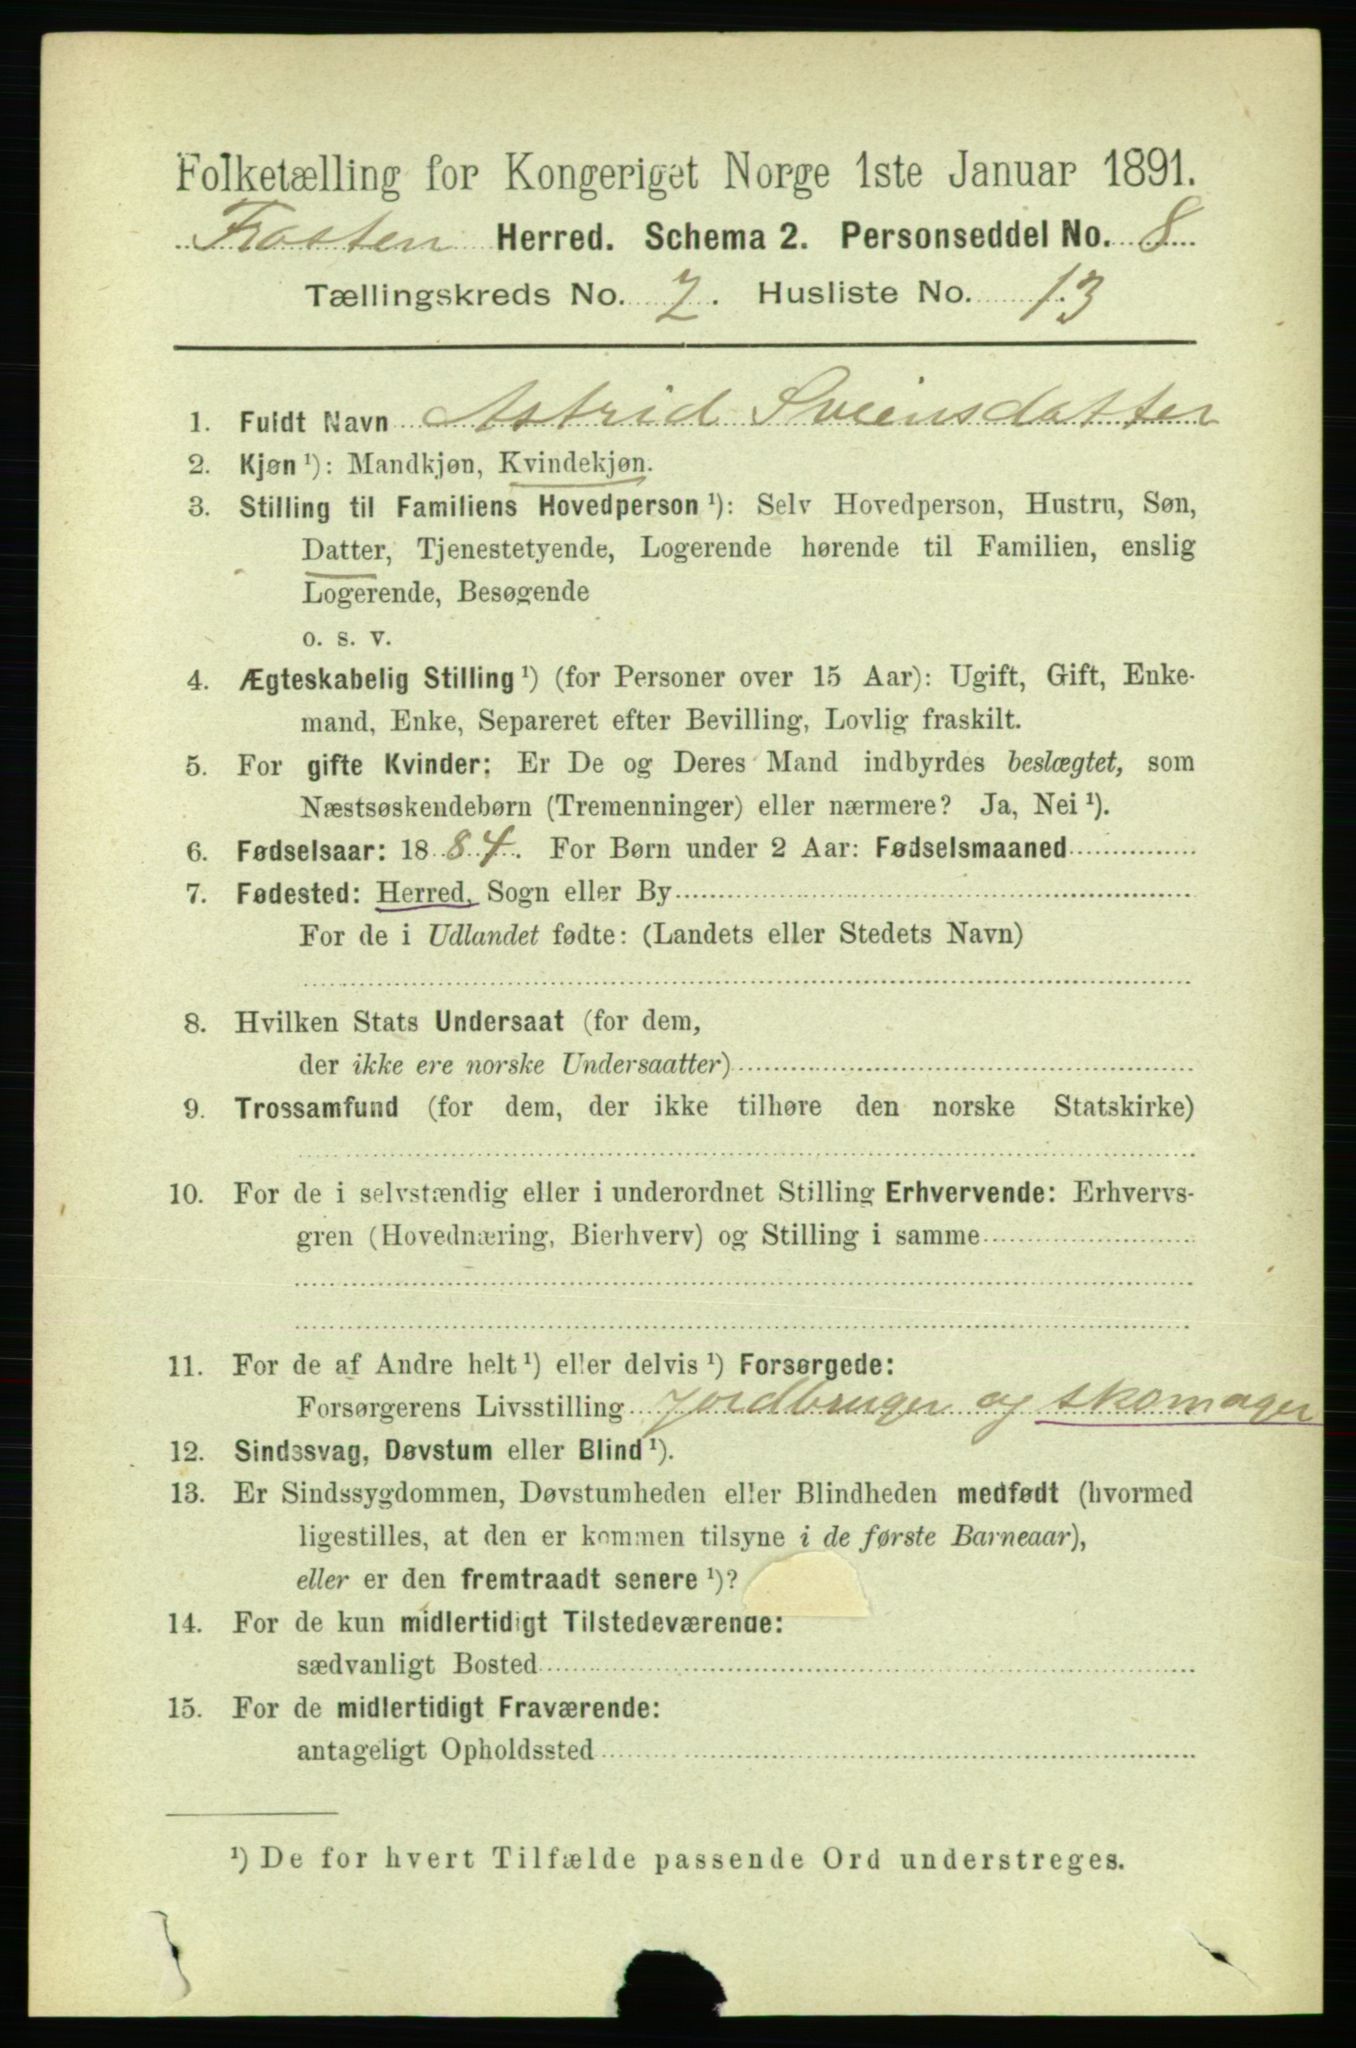 Folketælling for Kongeriget Norge 1ste Januar 1891.
Frosten Herred. Schema 2. Personseddel No. 8
Tællingskreds No. 7. Husliste No. 13
1. Fuldt Navn Astrid Sveinsdatter
2. Kjøn ¹): Mandkjøn, Kvindekjøn.
3. Stilling til Familiens Hovedperson ¹): Selv Hovedperson, Hustru, Søn,
Datter, Tjenestetyende, Logerende hørende til Familien, enslig
Logerende, Besøgende
o. s. v.
4. Ægteskabelig Stilling ¹) (for Personer over 15 Aar): Ugift, Gift, Enke-
mand, Enke, Separeret efter Bevilling, Lovlig fraskilt.
5. For gifte Kvinder: Er De og Deres Mand indbyrdes beslægtet, som
Næstsøskendebørn (Tremenninger) eller nærmere? Ja, Nei ¹).
6. Fødselsaar: 1884. For Børn under 2 Aar: Fødselsmaaned
7. Fødested: Herred, Sogn eller By
For de i Udlandet fødte: (Landets eller Stedets Navn)
8. Hvilken Stats Undersaat (for dem,
der ikke ere norske Undersaatter)
9. Trossamfund (for dem, der ikke tilhøre den norske Statskirke)
10. For de i selvstændig eller i underordnet Stilling Erhvervende: Erhvervs-
gren (Hovednæring, Bierhverv) og Stilling i samme
11. For de af Andre helt ¹) eller delvis ¹) Forsørgede:
Forsørgerens Livsstilling Jordbruger og skomager
12. Sindssvag, Døvstum eller Blind ¹).
13. Er Sindssygdommen, Døvstumheden eller Blindheden medfødt (hvormed
ligestilles, at den er kommen tilsyne i de første Barneaar),
eller er den fremtraadt senere ¹)?
14. For de kun midlertidigt Tilstedeværende:
sædvanligt Bosted
15. For de midlertidigt Fraværende:
antageligt Opholdssted
¹) De for hvert Tilfælde passende Ord understreges.